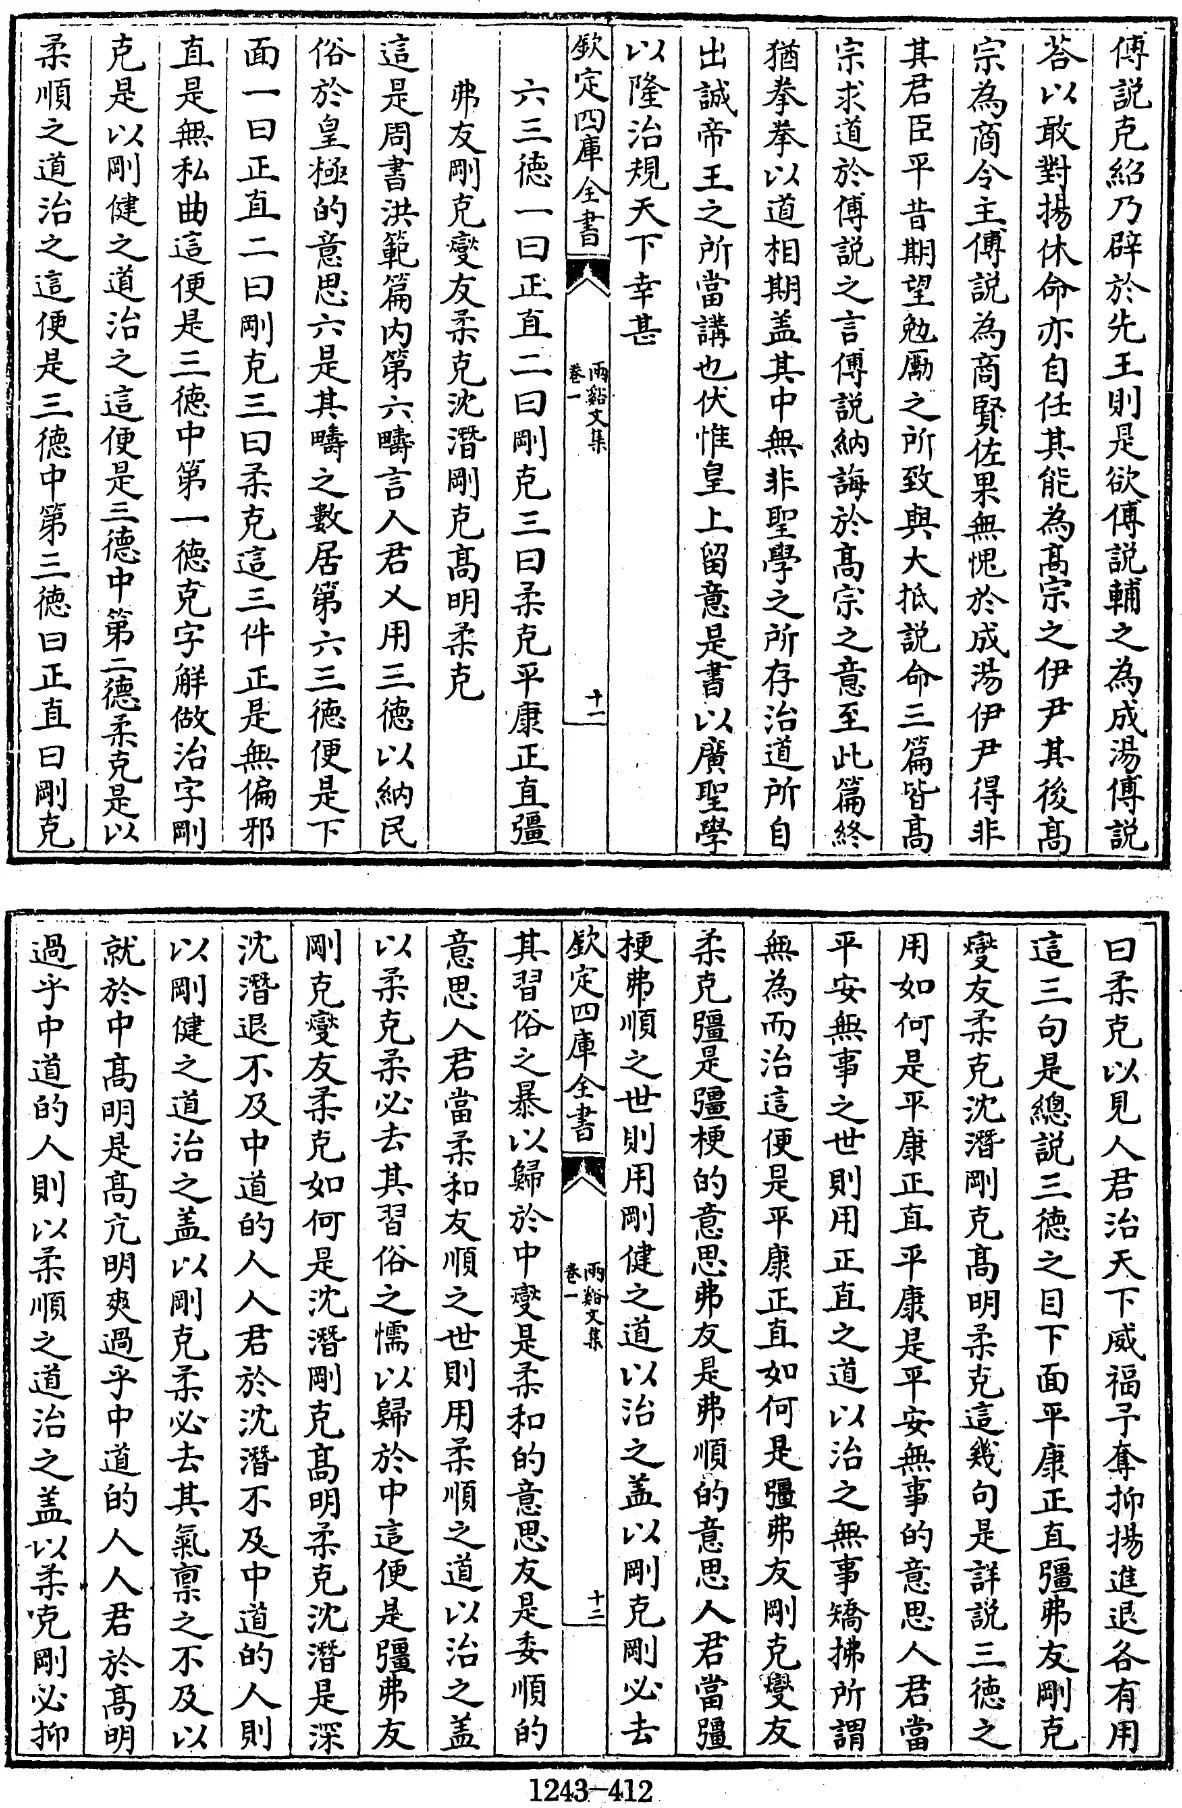 傅説克紹乃辟於先王則是欲傅説輔之為成湯傅説
荅以敢對揚休命亦自任其能為髙宗之伊尹其後髙
宗為商令主傅説為商賢佐果無愧於成湯伊尹得非
其君臣平昔期望勉勵之所致與大抵説命三篇皆髙
宗求道於傅説之言傅説納誨於髙宗之意至此篇終
猶拳拳以道相期盖其中無非聖學之所存治道所自
出誠帝王之所當講也伏惟皇上留意是書以廣聖學
以隆治規天下幸甚
欽定四庫全書
兩谿文集
卷一
十一
六三徳一曰正直二曰剛克三曰柔克平康正直彊
弗友剛克燮友柔克沈潛剛克髙明柔克
這是周書洪範篇内第六疇言人君乂用三徳以納民
俗於皇極的意思六是其疇之數居第六三徳便是下
面一曰正直二曰剛克三曰柔克這三件正是無偏邪
直是無私曲這便是三徳中第一徳克字解做治字剛
克是以剛健之道治之這便是三徳中第二徳柔克是以
柔順之道治之這便是三徳中第三徳曰正直曰剛克
曰柔克以見人君治天下威福予奪抑揚進退各有用
這三句是總説三徳之目下面平康正直彊弗友剛克
燮友柔克沈潛剛克髙明柔克這幾句是詳説三徳之
用如何是平康正直平康是平安無事的意思人君當
平安無事之世則用正直之道以治之無事矯拂所謂
無為而治這便是平康正直如何是彊弗友剛克燮友
柔克彊是彊梗的意思弗友是弗順的意思人君當彊
梗弗順之世則用剛健之道以治之盖以剛克剛必去
欽定四庫全書
兩谿文集
卷一
十二
其習俗之暴以歸於中燮是柔和的意思友是委順的
意思人君當柔和友順之世則用柔順之道以治之盖
以柔克柔必去其習俗之懦以歸於中這便是彊弗友
剛克燮友柔克如何是沈潛剛克髙明柔克沈潛是深
沈潛退不及中道的人人君於沈潛不及中道的人則
以剛健之道治之盖以剛克柔必去其氣禀之不及以
就於中髙明是髙亢明爽過乎中道的人人君於髙明
過乎中道的人則以柔順之道治之盖以柔克剛必抑
1243-412